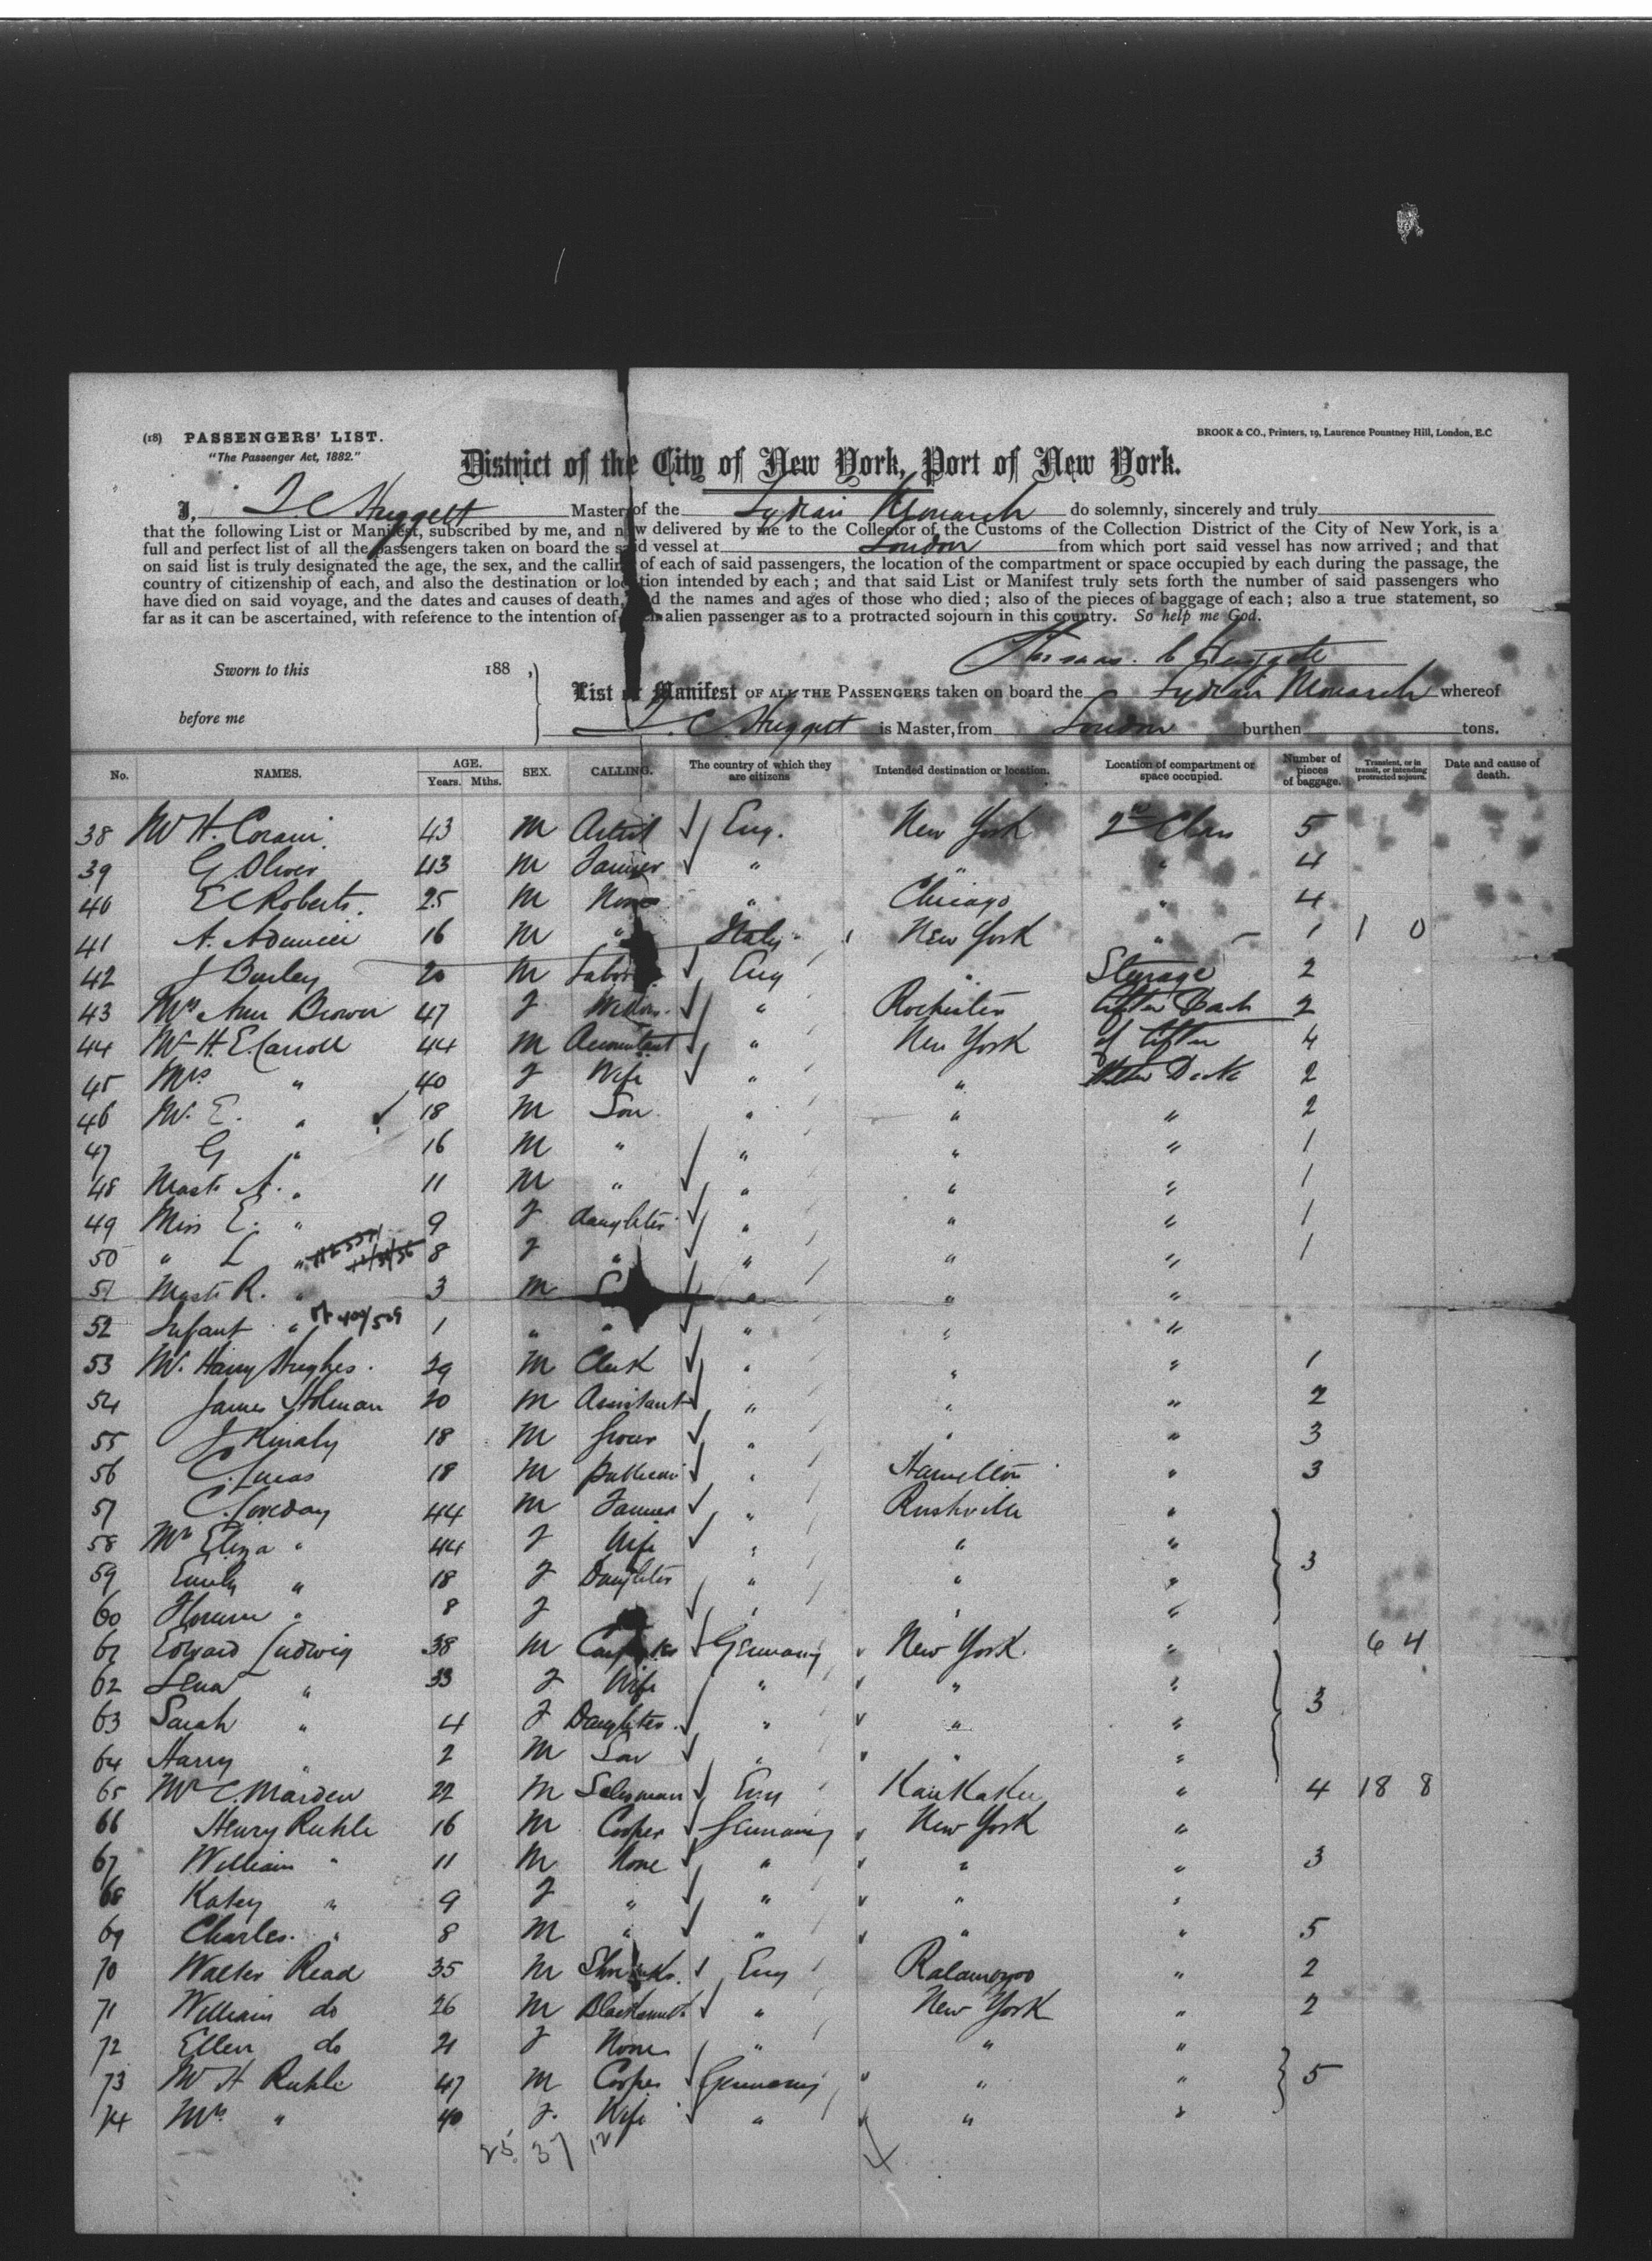 (18) PASSENGERS' LIST.
"The Passenger Act, 1882."
BROOK & CO., Printers, 19, Laurence Pountney Hill, London, E.C
District of the City of New York, Port of New York.
I, T C Huggett Master of the Lydian Monarch do solemnly, sincerely and truly
that the following List or Manifest, subscribed by me, and now delivered by me to the Collector of the Customs of the Collection District of the City of New York, is a
full and perfect list of all the passengers taken on board the said vessel at London from which port said vessel has now arrived; and that
on said list is truly designated the age, the sex, and the calling of each of said passengers, the location of the compartment or space occupied by each during the passage, the
country of citizenship of each, and also the destination or location intended by each; and that said List or Manifest truly sets forth the number of said passengers who
have died on said voyage, and the dates and causes of death, and the names and ages of those who died; also of the pieces of baggage of each; also a true statement, so
far as it can be ascertained, with reference to the intention of each alien passenger as to a protracted sojourn in this country. So help me God.
Thomas. C Huggett
Sworn to this 188 ,
before me
List or Manifest OF ALL THE PASSENGERS taken on board the Lydian Monarch whereof
T. C. Huggett is Master, from London burthen tons.
No. NAMES. AGE. Years. Mths. SEX. CALLING. The country of which they are citizens Intended destination or location. Location of compartment or space occupied. Number of pieces of baggage. Transient, or in transit, or intending protracted sojourn. Date and cause of death.
38 Mr H. 43 M Artist Eng. New York 2nd Class 5
39 G Oliver 43 M Farmer " " " 4
40 E C Roberts. 25 M None " Chicago " 4
41 A. 16 M " Italy New York " 1 1 0
42 J Burley 20 M Labor Eng " Sterage 2
43 Mrs Ann Brown 47 F Widow " Rochester After Deck 2
44 Mr H. E. Carroll 44 M Accountant " New York of After 4
45 Mrs " 40 F Wife " " Deck 2
46 Mr. E. " 18 M Son " " " 2
47 G " 16 M " " " " 1
48 Mastr A. " 11 M " " " " 1
49 Miss E. " 9 F daughter " " " 1
50 " L " 8 F " " " " 1
51 Mastr R. " 3 M " " "
52 Infant " 1 " " " " "
53 Mr. Harry Hughes. 29 M Clerk " " " 1
54 James Holman 20 M Assistant " " " 2
55 J 18 M Grocer " " " 3
56 C. Lucas 18 M " Hamilton " 3
57 C. Loveday 44 M Farmer " Rushville "
58 Mrs Eliza " 44 F Wife " " "
59 Emily " 18 F Daughter " " " 3
60 Florence " 8 F " " "
61 Edward Ludwig 38 M Germany New York. " 6 4
62 Lena " 33 F Wife " " "
63 Sarah " 4 F Daughter " " " 3
64 Harry " 2 M Son " " "
65 Mr C. Marden 22 M Salesman Eng Kankakee " 4 18 8
66 Henry Ruhle 16 M Cooper Germany New York "
67 William " 11 M None " " " 3
68 Katey " 9 F " " " "
69 Charles. " 8 M " " " " 5
70 Walter Read 35 M Eng Kalamazoo " 2
71 William do 26 M Blacksmith " New York " 2
72 Ellen do 21 F None " " "
73 Mr H Ruhle 47 M Cooper Germany " " 5
74 Mrs " 40 F. Wife " " "
25. 37 12